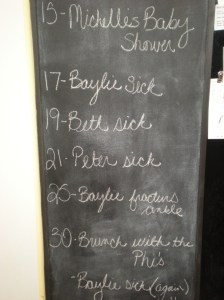 15- Michelle's Baby
Shower
17- Baylie Sick
19- Beth sick
21- Peter sick
25- Baylee fractures
ankle
30- Brunch with the
Phi's
"Baylie sick (again)